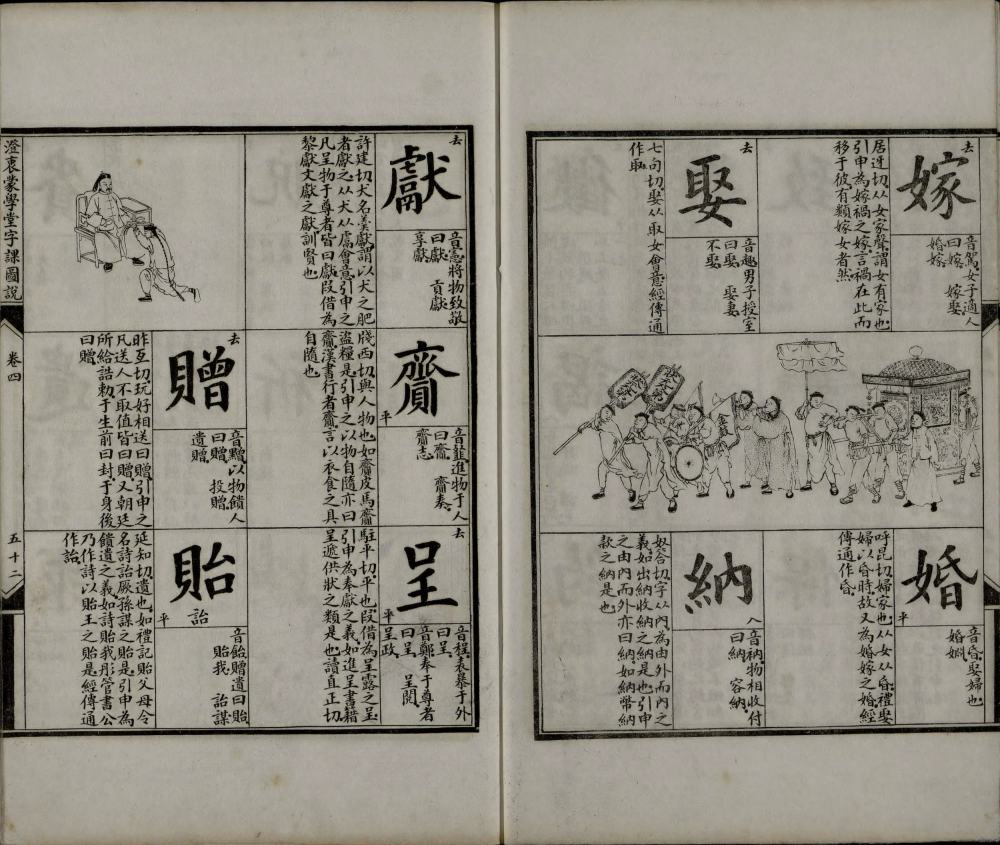 去
嫁
音駕女子適人
曰嫁 嫁娶
婚嫁
居迓切从女家聲謂女有家也
引申為嫁禍之嫁言禍在此而
移于彼有類嫁女者然
去
娶
音趣男子授室
曰娶 娶妻
不娶
七句切娶从取女會意經傳通
作取
婚
平
音昏娶婦也
婚姻
呼昆切婦家也从女从昏禮娶
婦以昏時故又為婚嫁之婚經
傳通作昏
納
入
音衲物相收付
曰納 容納
奴荅切字从內為由外而內之
義如出納收納之納是也引申
之由內而外亦曰納如納幣納
款之納是也
去
獻
音憲將物致敬
曰獻 貢獻
享獻
許建切犬名羹獻謂以犬之肥
者獻之从犬从鬳會意引申之
凡呈物于尊者皆曰獻叚借為
黎獻文獻之獻訓賢也
齎
平
音韲進物于人
曰齎 齎奏
齎志
牋西切與人物也如齎皮馬齎
盜糧是引申之以物自隨亦曰
齎漢書行者齎言以衣食之具
自隨也
去
贈
音䰝以物饋人
曰贈 投贈
遺贈
昨亙切玩好相送曰贈引申之
凡送人不取值皆曰贈又朝廷
所給誥勅于生前曰封于身後
曰贈
去
呈
平
音程表暴于外
曰呈
音鄭奉于尊者
曰呈 呈閱
呈政
駐平切平也叚借為呈露之呈
引申為奉獻之義如進呈書籍
呈遞供狀之類是也讀直正切
貽
詒
平
音飴贈遺曰貽
貽我 詒謀
延知切遺也如禮記貽父母令
名詩詒厥孫謀之貽是引申為
饋遺之義如詩貽我彤管書公
乃作詩以貽王之貽是經傳通
作詒
澄衷蒙學堂字課圖說
卷四
五十二